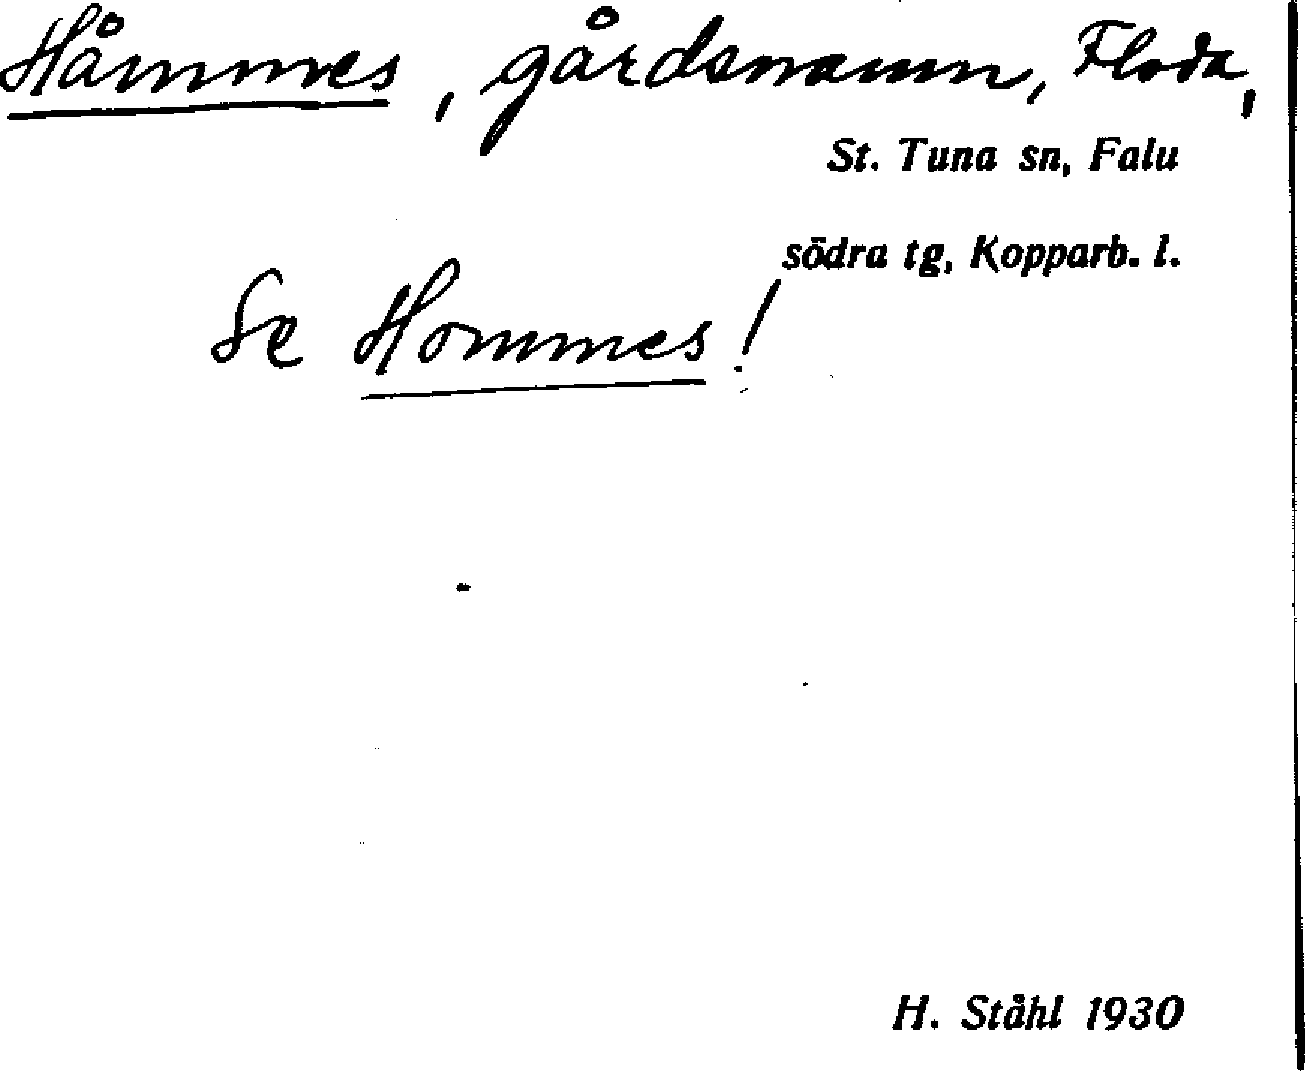 Håmmes, gårdsnamn, Floda,
St. Tuna sn, Falu
södra tg, Kopparb. l.
Se Hommes!
H. Ståhl 1930